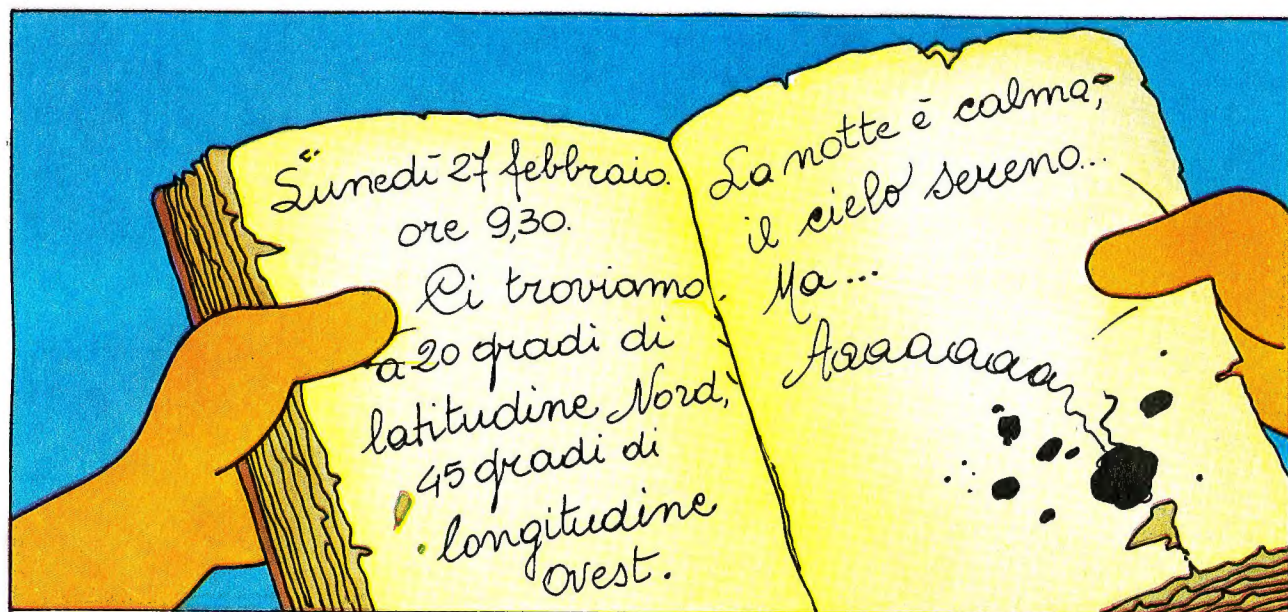 Lunedì 27 febbraio.
ore 9,30.
Ci troviamo
a 20 gradi di
latitudine Nord,
45 gradi di
longitudine
ovest.
La notte è calma,
il cielo sereno...
Ma...
Aaaaaaaa